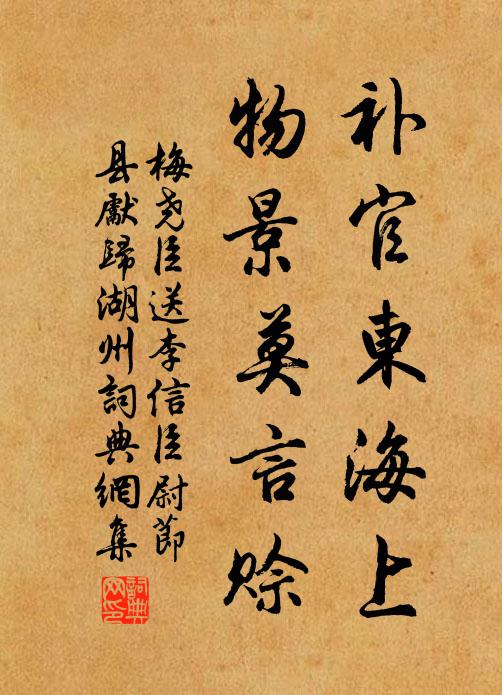 补官東海上
物景莫言賒
梅尧臣送李信臣尉節
县獻歸湖州詞典網集
詞典
网印